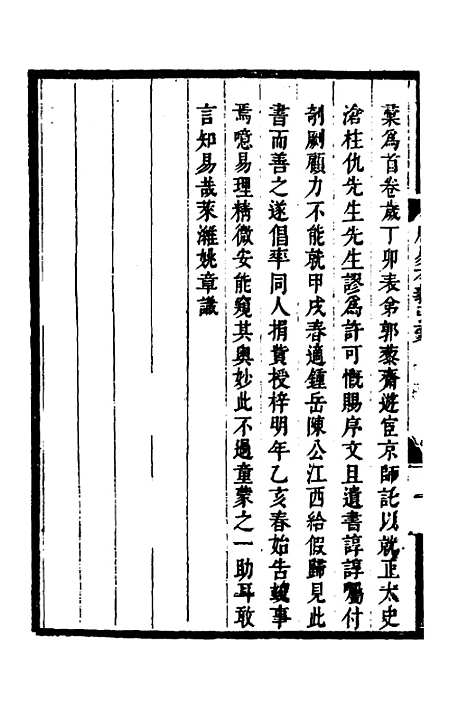 葉為首卷歲丁卯表弟郭藜齋遊宦京師託以就正太史
滄柱仇先生先生謬為許可慨賜序文且遺書諄諄屬付
剞劂顧力不能就甲戌春適鍾岳陳公江西給假歸見此
書而善之遂倡率同人捐貲授梓明年乙亥春始告竣事
焉噫易理精微安能窺其奥妙此不過童蒙之一助耳敢
言知易哉萊濰姚章識